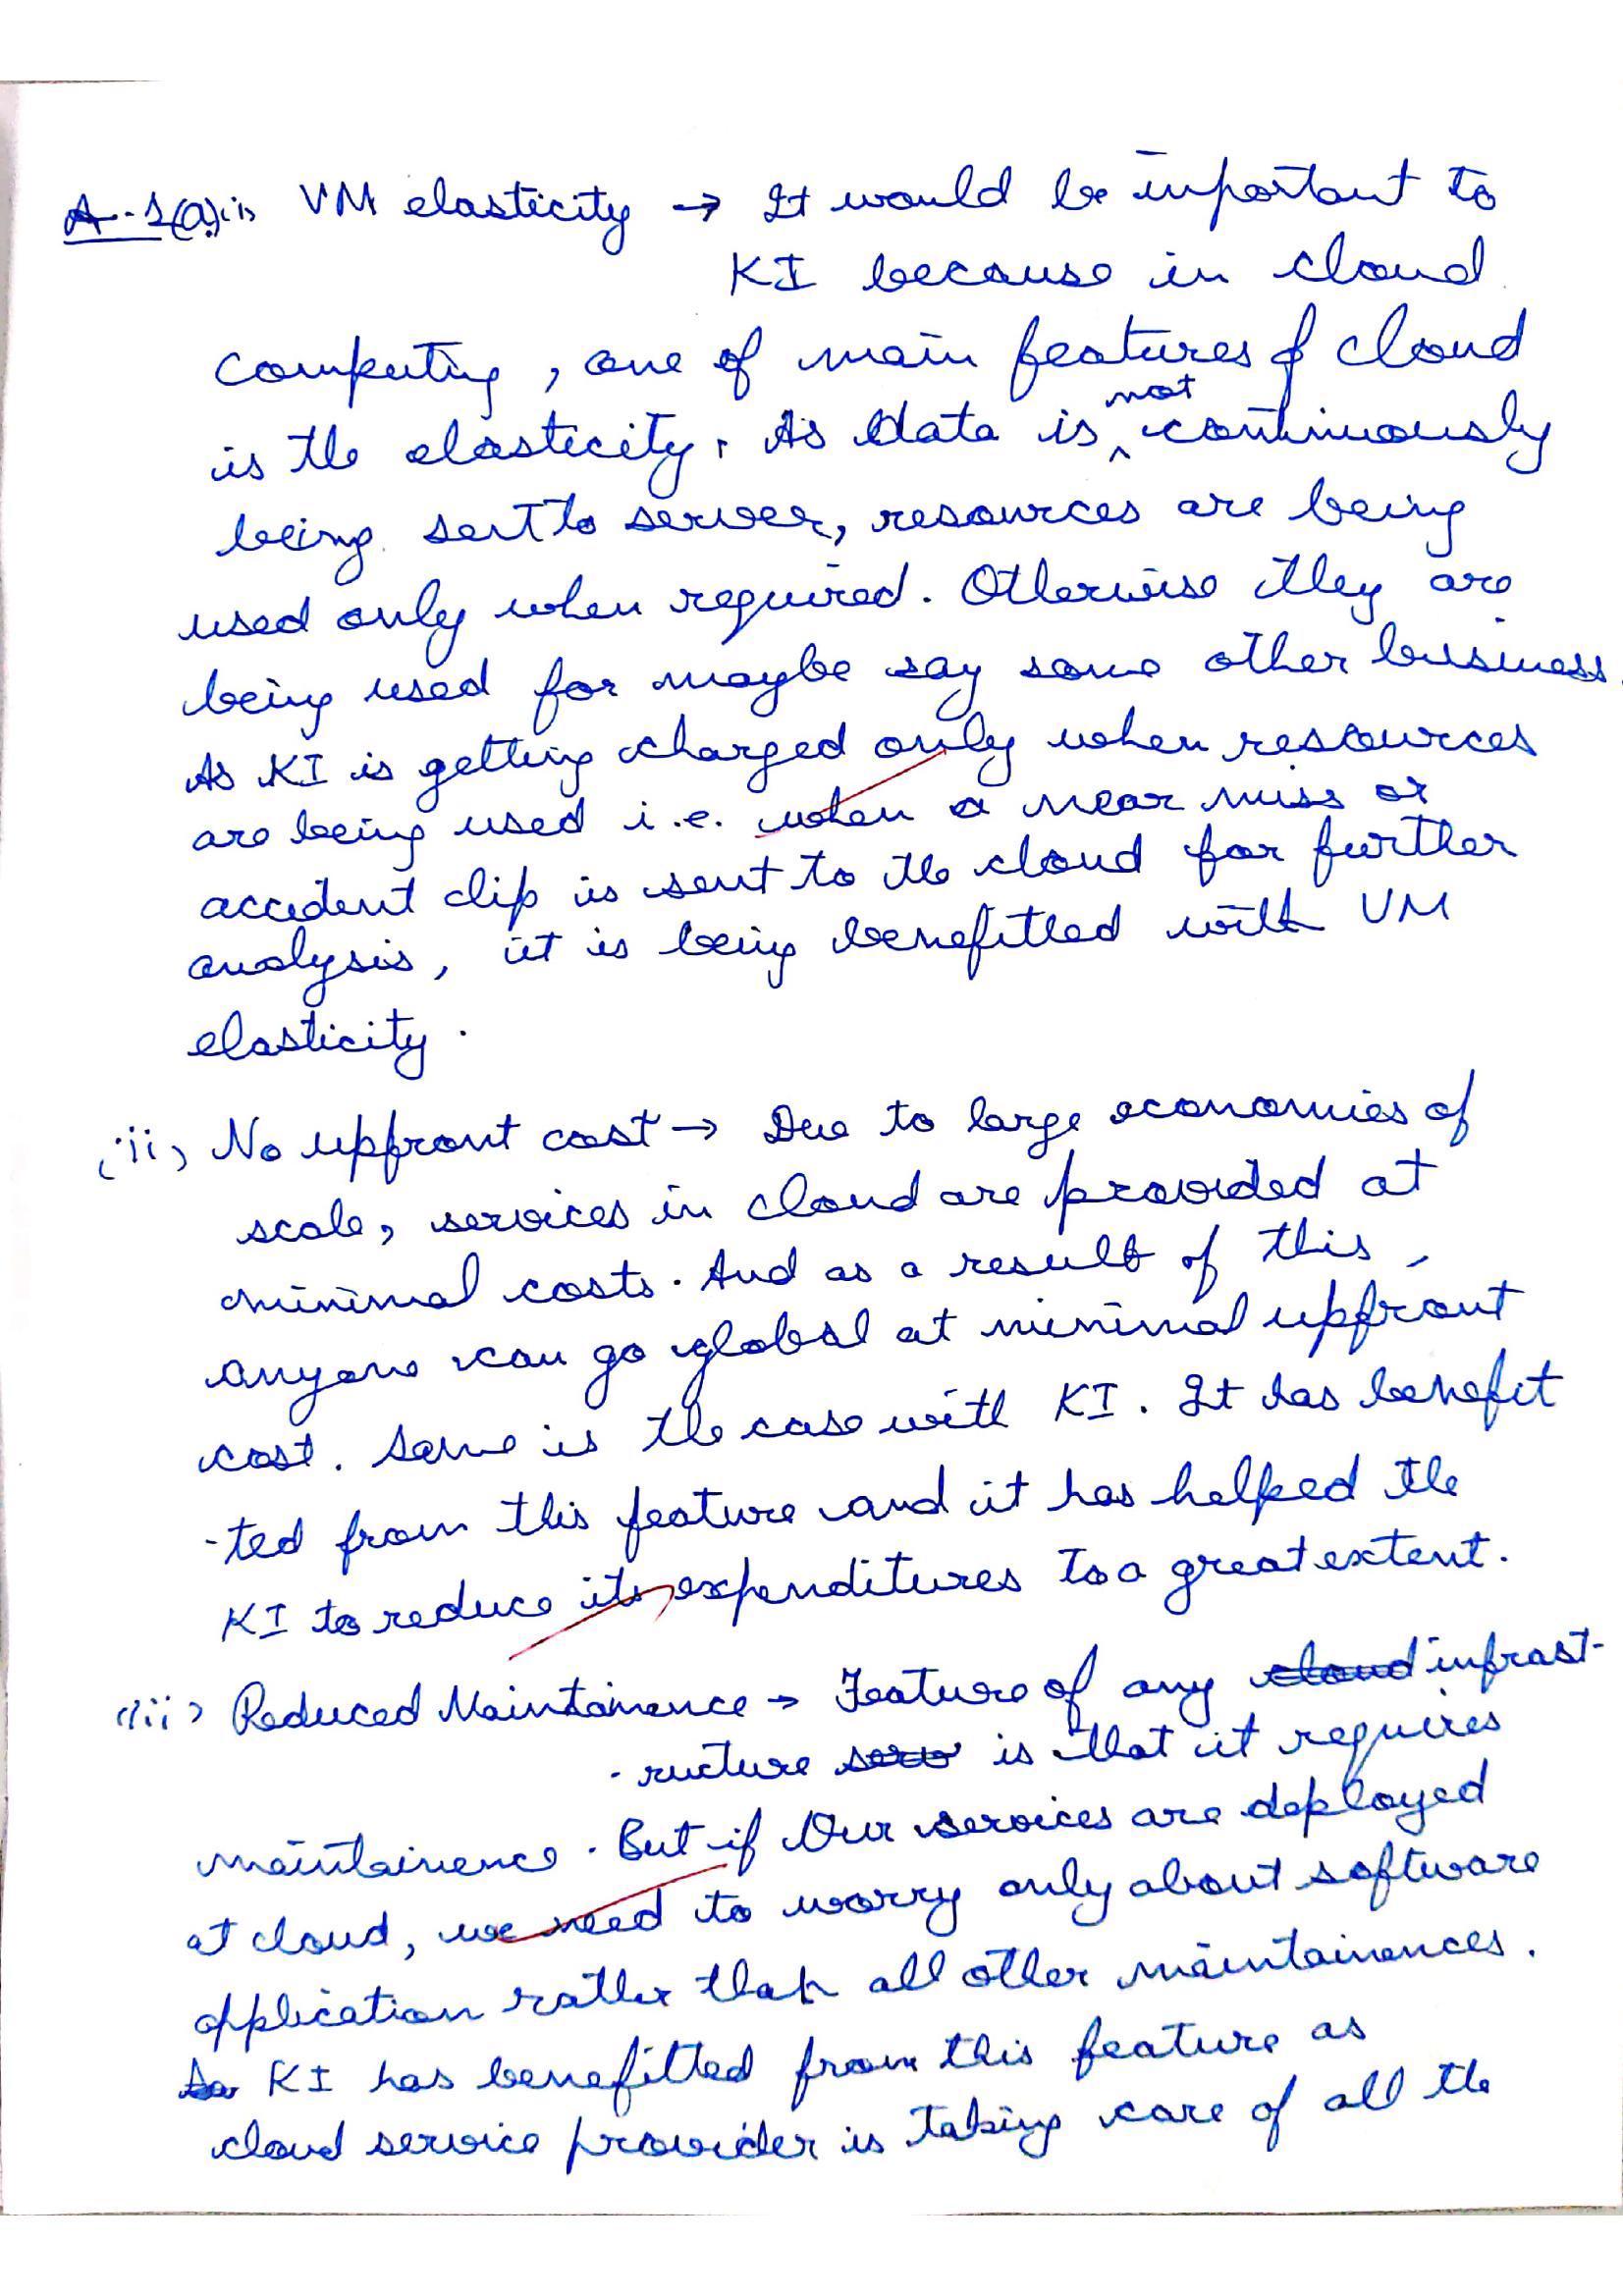 A-1(a)(i) VM elasticity → It would be important to
KI because in cloud
computing, one of main features of cloud
is the elasticity. As data is not continuously
being sent to server, resources are being
used only when required. Otherwise they are
being used for maybe say some other business.
As KI is getting charged only when resources
are being used i.e. when a near miss or
accident clip is sent to the cloud for further
analysis, it is being benefitted with VM
elasticity.
(ii) No upfront cost → Due to large economies of
scale, services in cloud are provided at
minimal costs. And as a result of this,
anyone can go global at minimal upfront
cost. Same is the case with KI. It has benefit
-ted from this feature and it has helped the
KI to reduce its expenditures to a great extent.
(iii) Reduced Maintainence → Feature of any cloud infrast-
-ructure serv is that it requires
maintainence. But if Our services are deployed
at cloud, we need to worry only about software
application rather than all other maintainences.
So KI has benefitted from this feature as
cloud service provider is taking care of all the